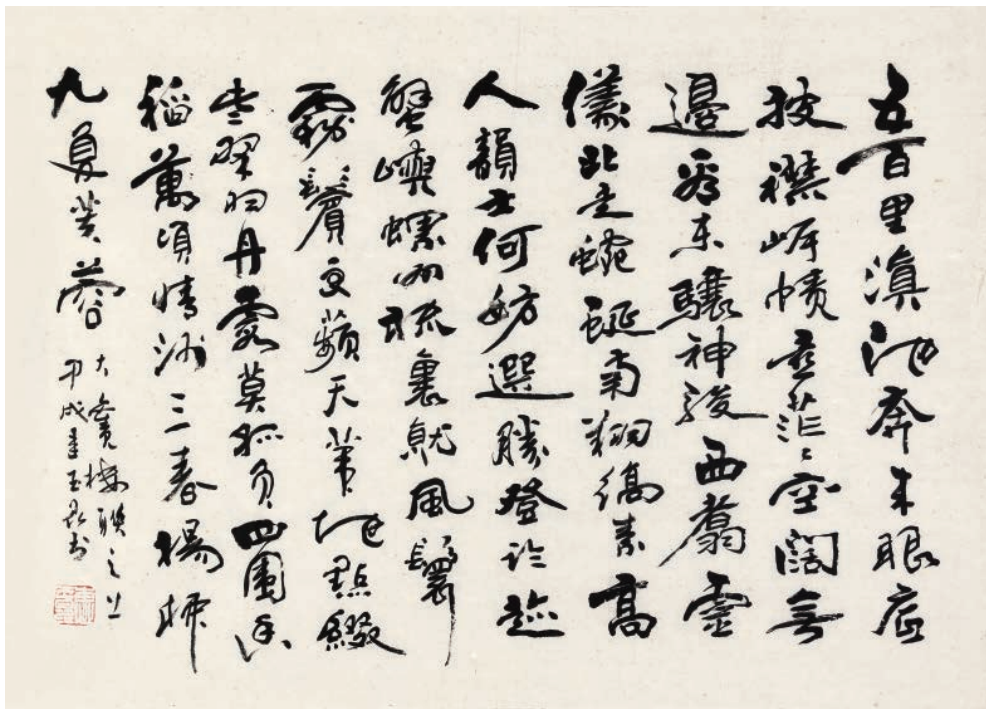 五百里滇池奔来眼底
披襟岸幘喜茫茫空闊無
邊看東驤神駿西翥靈
儀北走蜿蜒南翔縞素高
人韻士何妨選勝登临趁
蟹嶼螺洲梳裹就風鬟
霧鬢更蘋天葦地點綴
些翠羽丹霞莫孤負四圍香
稻萬頃晴沙三春楊柳
九夏芙蓉
大觀樓聯之上
甲戌